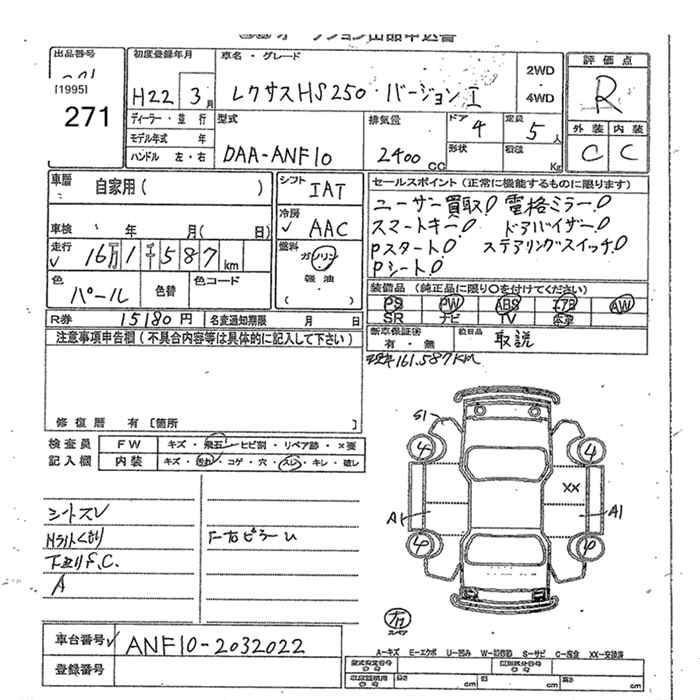 出品番号
[1995]
271
初度登録年月
H22 3月
車名・グレード
レクサスHS250・バージョンI
2WD
・
4WD
評価点
R
外装 内装
C C
ディーラー・並行
モデル年式 年
ハンドル 左・右
型式
DAA-ANF10
排気量
2400cc
ドア 4
形状
定員 5人
積載 Kg
車歴
自家用( )
車検 年 月( 日)
走行
16万1千587km
色
パール
色替
色コード
シフト IAT
冷房 AAC
燃料 ガソリン
・
軽油
( )
セールスポイント(正常に機能するものに限ります)
ユーザー買取! 電格ミラー!
スマートキー! ドアバイザー!
Pスタート! ステアリングスイッチ!
Pシート!
装備品(純正品に限り○を付けてください)
PS PW ABS エアB AW
SR ナビ TV 本革
R券 15180円 名変通知期限 月 日
新車保証書
有・無
取説
現車161.587KM
注意事項申告欄(不具合内容等は具体的に記入して下さい)
修復歴 有〔箇所 〕
検査員
記入欄
FW キズ・飛石・ヒビ割・リペア跡・×要
内装 キズ・汚れ・コゲ・穴・スレ・キレ・破レ
シートスレ
Hライトくもり
下廻りS.C.
A
F右ピラーU
S1
4 4
XX
A1 A1
4 4
スペア
車台番号 ANF10-2032022
登録番号
A-キズ E-エクボ U-凹み W-補修跡 S-サビ C-腐食 XX-交換済
型式指定番号
類別区分番号
長さ cm 幅 cm 高 cm